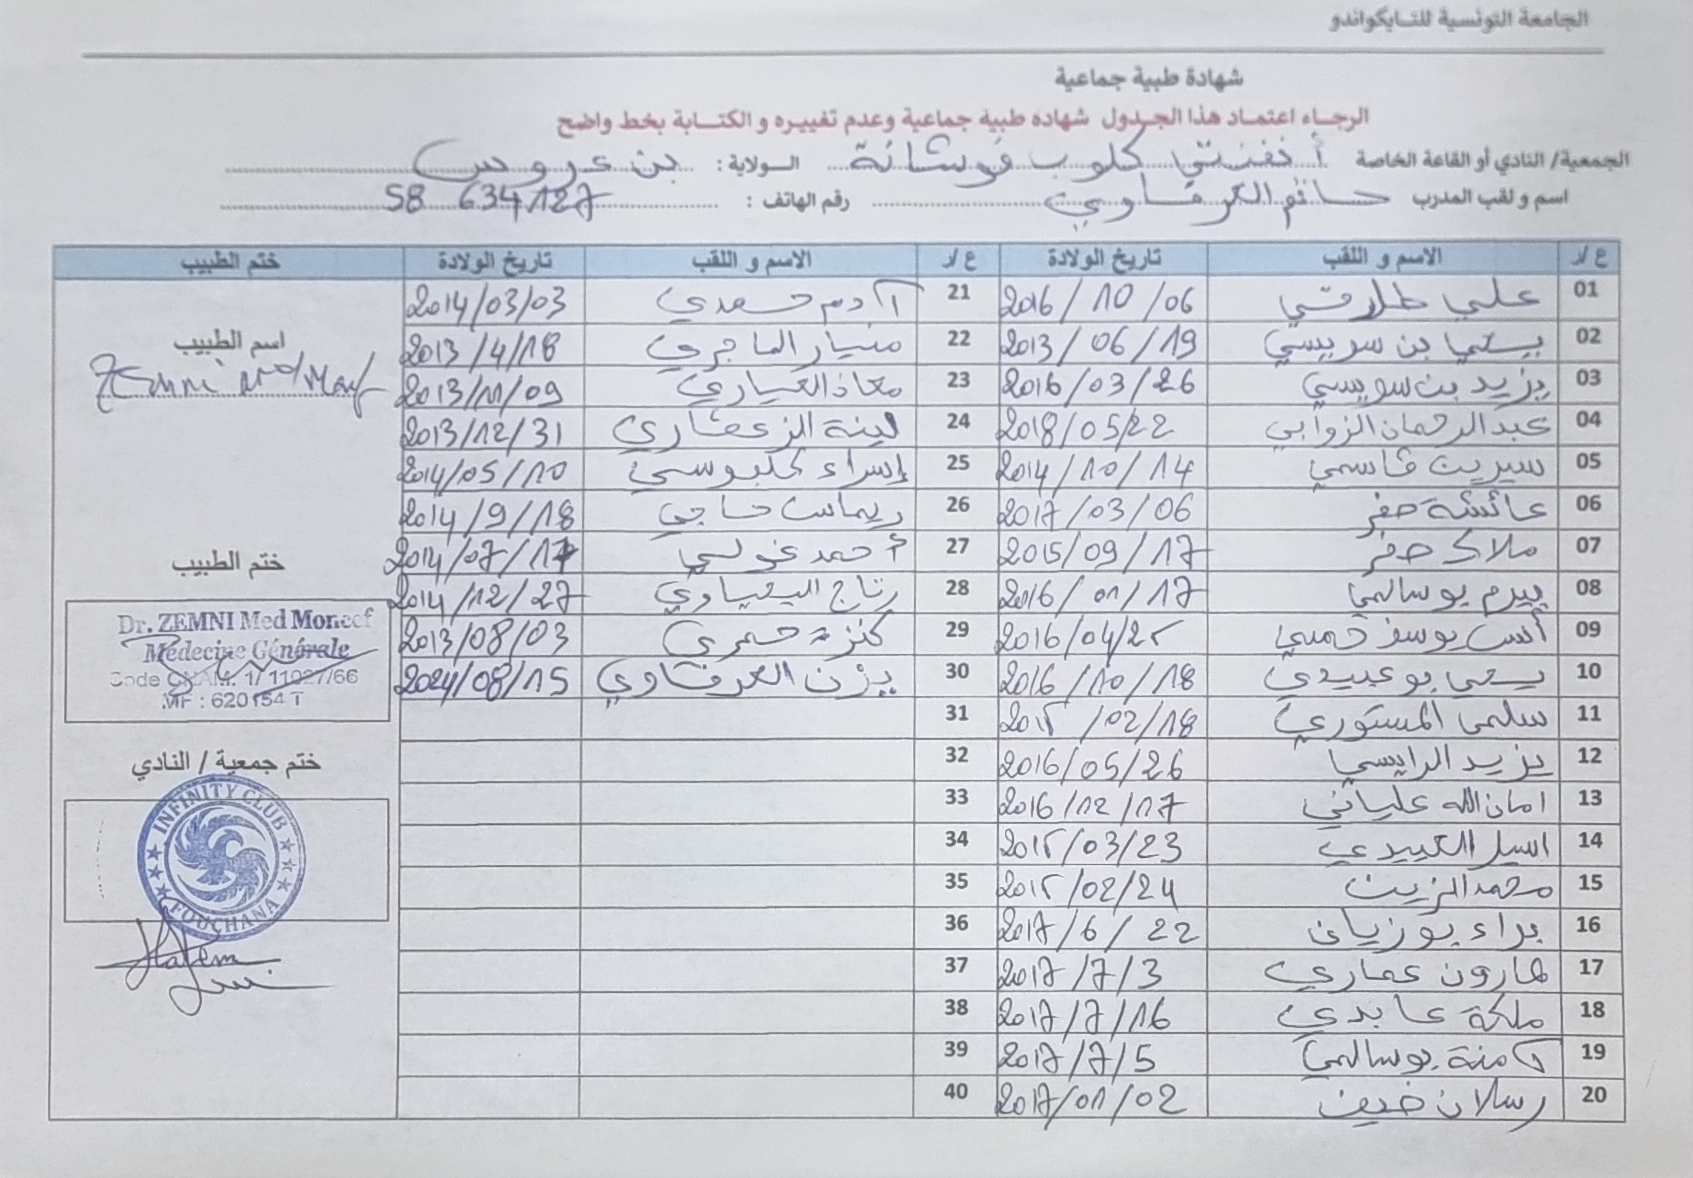 الجامعة التونسية للتايكواندو
شهادة طبية جماعية
الرجاء اعتماد هذا الجدول شهادة طبية جماعية وعدم تغييره و الكتابة بخط واضح
الجمعية/ النادي أو القاعة الخاصة أنفنتي كلوب فوشانة الولاية : بن عروس
اسم و لقب المدرب حاتم العرفاوي رقم الهاتف : 58 634 127
ع /ر الاسم و اللقب تاريخ الولادة ع /ر الاسم و اللقب تاريخ الولادة ختم الطبيب
01 علي طلارقي 2016/10/06 21 آدم سعدي 2014/03/03
02 يحي بن سويسي 2013/06/19 22 منيار الماجري 2013/4/18
03 يزيد بن سويسي 2016/03/26 23 معاذ العياري 2013/11/09
04 عبد الرحمان الزوابي 2018/05/22 24 لينة الزعفاري 2013/12/31
05 سيرين قاسمي 2014/10/14 25 إسراء كلبوسي 2014/05/10
06 عائشة صفر 2017/03/06 26 ريماس حاجي 2014/9/18
07 ملاك صفر 2015/09/17 27 أحمد غولي 2014/07/17
08 بيرم بوسالمي 2016/01/17 28 رتاج اليحياوي 2014/12/27
09 أنس يوسف حميي 2016/04/25 29 كنزة حمري 2013/08/03
10 يحي بوعبيدي 2016/10/18 30 يزن العرفاوي 2024/08/15
11 سلمى المستوري 2015/02/18 31
12 يزيد الرايسي 2016/05/26 32
13 امان الله علياني 2016/12/17 33
14 اسيل العبيدي 2015/03/23 34
15 محمد الزين 2015/02/24 35
16 براء بوزيان 2017/6/22 36
17 هارون عماري 2017/7/3 37
18 ملكة عابدي 2017/7/16 38
19 آمنة بوسالمي 2017/7/5 39
20 رسلان ضيف 2017/01/02 40
اسم الطبيب
Zemni Med Moncef
ختم الطبيب
Dr. ZEMNI Med Moncef
Médecine Générale
Code CNAM: 1/11027/66
MF : 620154 T
ختم جمعية / النادي
INFINITY CLUB
FOUCHANA
Hatem